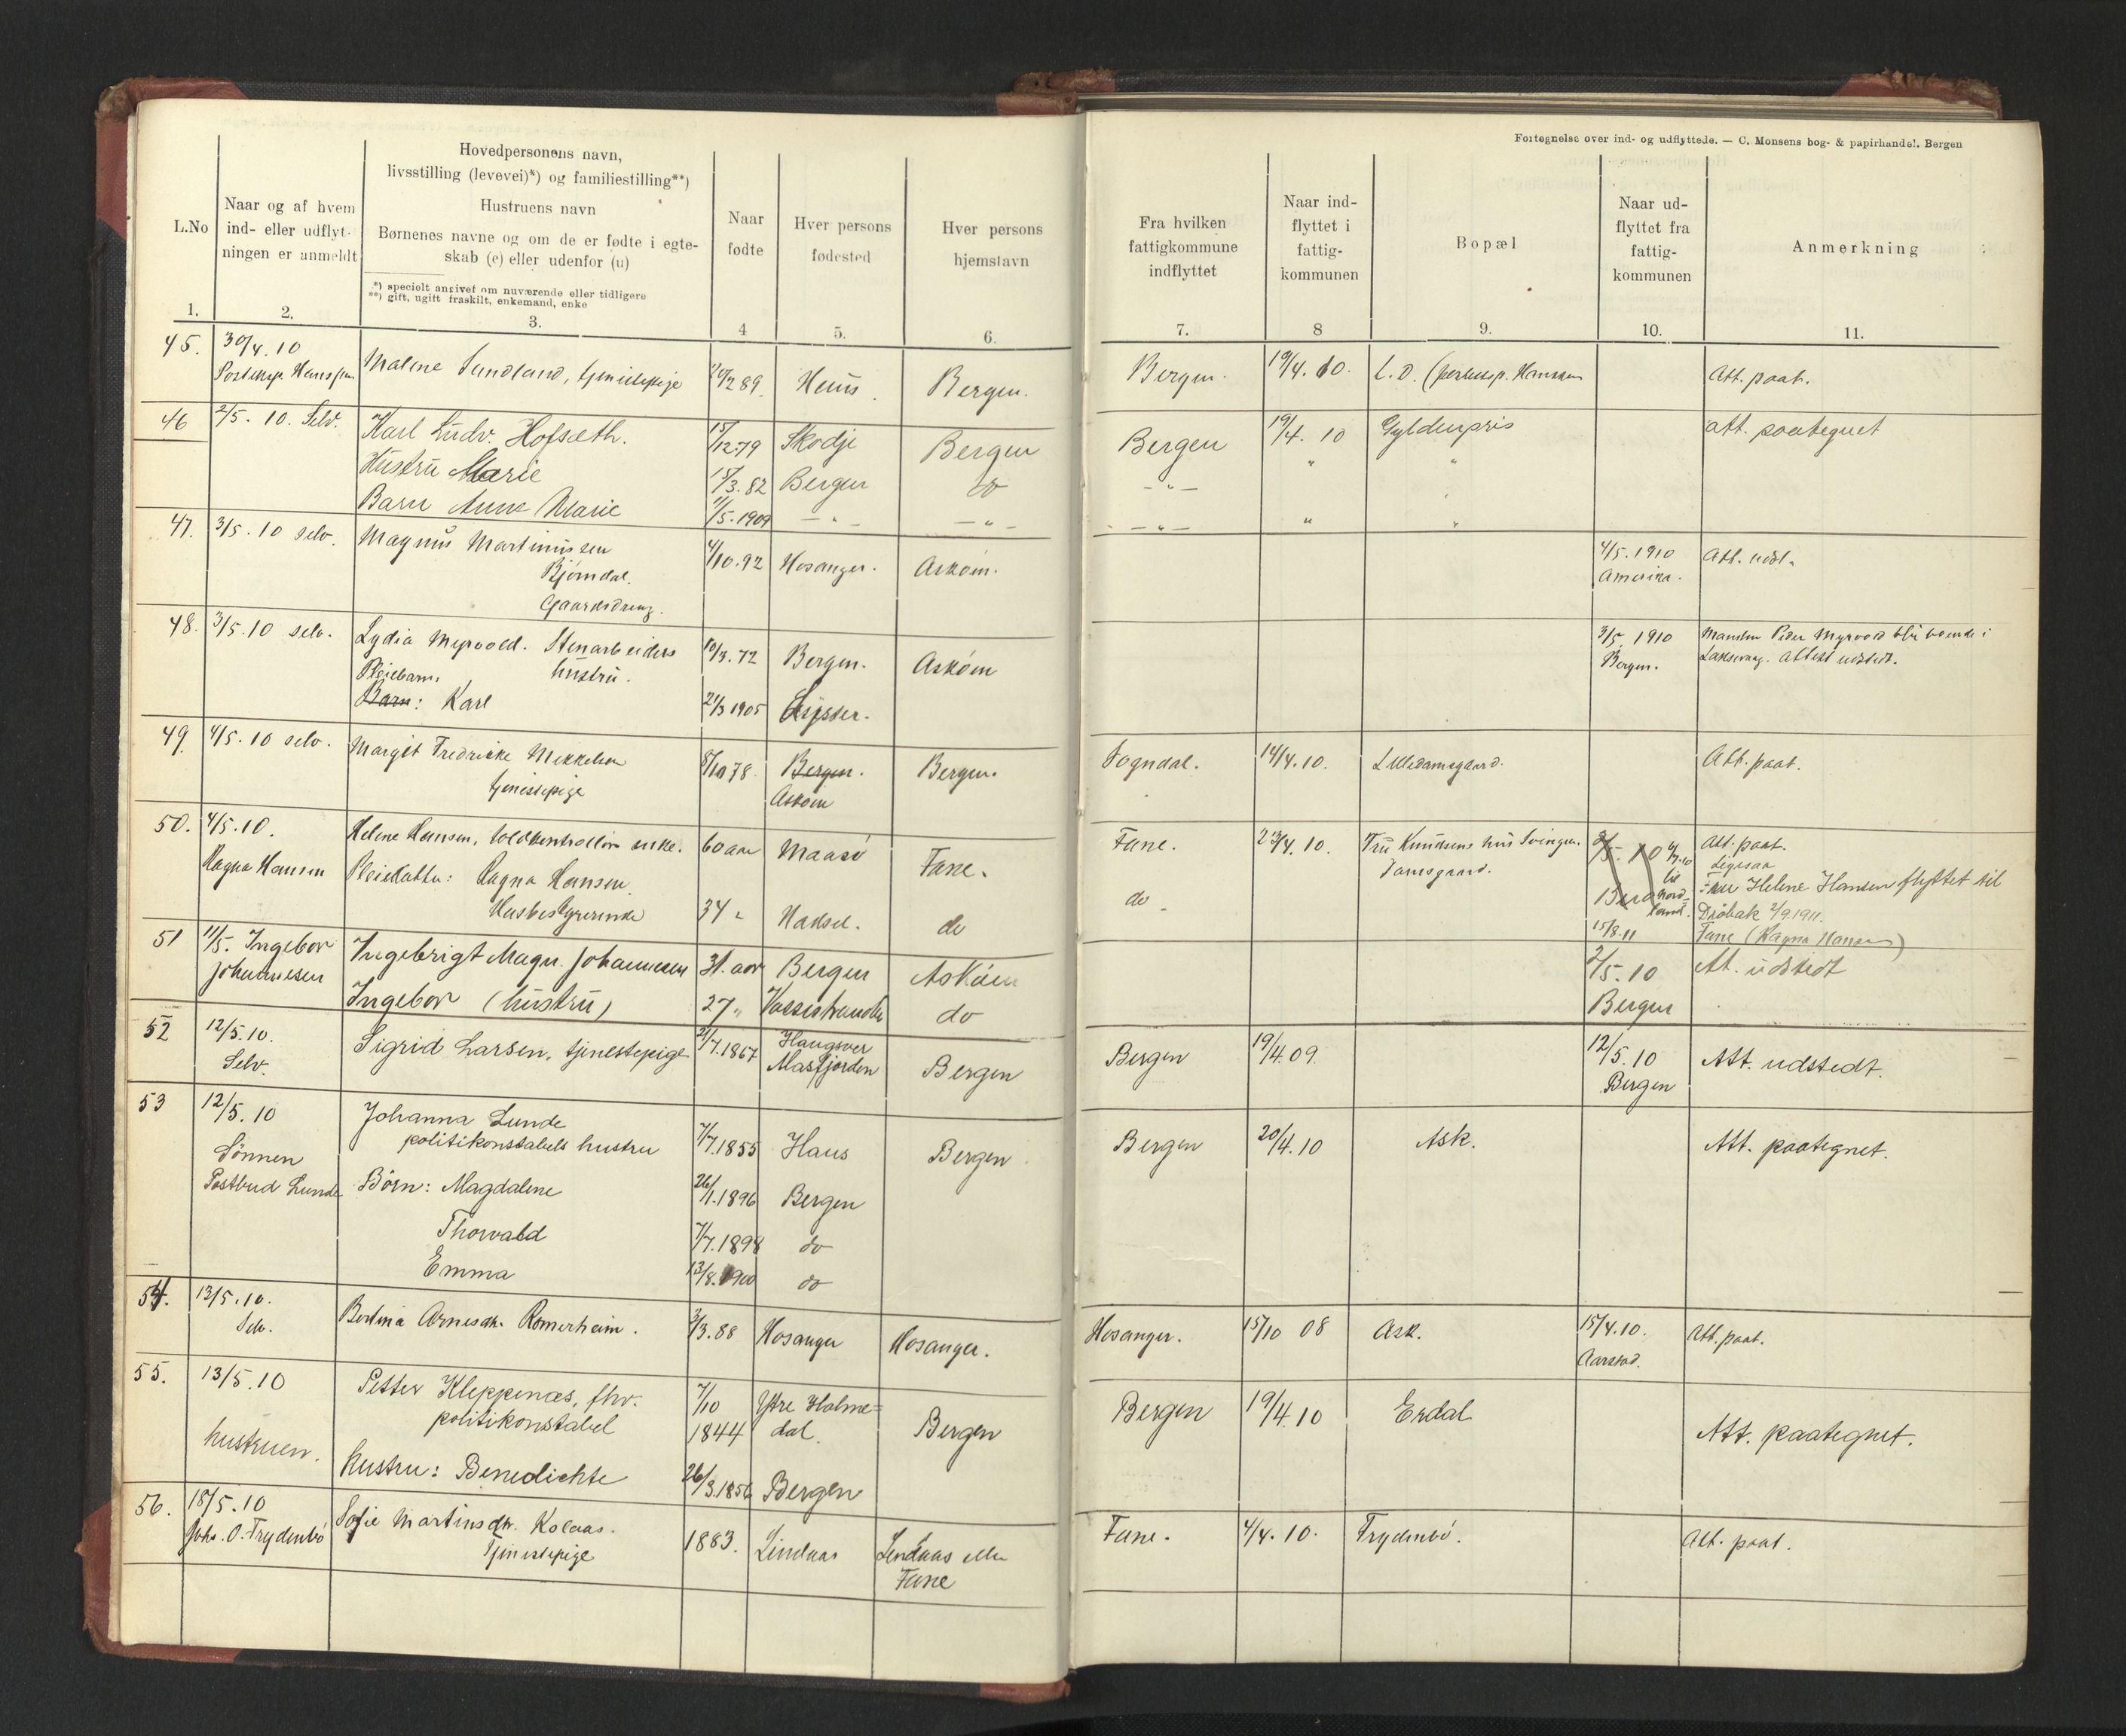 Fortegnelse over ind- og udflyttede. — C. Monsens bog- & papirhandel. Bergen
L.No
Naar og af hvem
ind- eller udflyt-
ningen er anmeldt
Hovedpersonens navn,
livsstilling (levevei)*) og familiestilling**)
Hustruens navn
Børnenes navne og om de er fødte i egte-
skab (e) eller udenfor (u)
*) specielt angivet om nuværende eller tidligere
**) gift, ugift fraskilt, enkemand, enke
Naar
fødte
Hver persons
fødested
Hver persons
hjemstavn
Fra hvilken
fattigkommune
indflyttet
Naar ind-
flyttet i
fattig-
kommunen
Bopæl
Naar ud-
flyttet fra
fattig-
kommunen
Anmerkning
1. 2. 3. 4 5. 6. 7. 8 9. 10. 11.
45. 30/4. 10 Malene Sundland, tjenestepige 89. Bergen. Bergen. 19/4. 10. L.O. (postexp. Hanssen Att. paat.
Postexp. Hanssen
46 2/5. 10. Selv. Karl Ludv. Hofsæth. 15/12.79 Skodje Bergen Bergen 19/4. 10 Gyldenpris att. paategnet
Hustru Marie /3.82 Bergen do - " - " "
Barn Anna Marie /5.1909 - " - - " - - " - " "
47. 3/5. 10 selv. Magnus Martinussen 4/10.92 Hosanger. Askøen. 4/5. 1910 Att. udst.
Bjørndal. Amerika.
Gaardsdreng.
48. 3/5. 10 selv. Lydia Myrvold. Stenarbeiders 10/3. 72 Bergen. Askøen 3/5 1910 Manden Peder Myrvold blir boende i
Pleiebarn. hustru. Bergen. Laksevaag. Attest udstedt.
Barn: Karl 21/3 1905
49. 4/5. 10 selv. Margit Fredrikke Mikkelsen 8/10 78. Bergen. Bergen. Sogndal. 14/4. 10. Lilledamsgaard. Att. paat.
tjenestepige Askøen
50. 4/5. 10. Helene Hansen, toldkontrollør enke. 60 aar Maasø Fane. Fane. 23/4. 10. Fru Knudsens hus Svingen. Att. paat.
Ragna Hansen Pleiedatter: Ragna Hansen Damsgaard. Ligesaa
Husbestyrerinde 34 " Hadsel. do do - Fru Helene Hansen flyttet til
Drøbak 2/9.1911.
15/8.11 Fane (Ragna Hansen)
51 11/5. Ingebor Ingebrigt Magn. Johannesen 31. aar Bergen Askøen 2/5. 10 Att. udstedt
Johannesen Ingebor (hustru) 27 " do Bergen
52 12/5. 10. Sigrid Larsen, tjenestepige 21/7.1867 Haugsver Bergen Bergen 19/4.09. 12/5. 10 Att. udstedt.
Selv. Masfjorden Bergen
53 12/5. 10 Johanna Lunde 7/7.1855 Haus Bergen Bergen 20/4. 10 Ask. Att. paategnet.
Sønnen politikonstabels hustru
Postbud Lunde Børn: Magdalene 26/1.1896 Bergen
Thorvald 7/7.1898 do
Emma 13/8.1900 do
54. 13/5. 10. Bertina Arnesdtr. Romerheim. 3/3. 88 Hosanger Hosanger. Hosanger. 15/10 08 Ask. 15/4. 10. Att. paat.
Selv. Aarstad.
55. 13/5. 10 Petter Kleppenæs, fhv. 7/10 Ytre Holme= Bergen Bergen 19/4. 10 Erdal Att. paategnet.
hustruen. politikonstabel 1844 dal.
hustru: Benedichte 26/3.1856 Bergen
56. 18/5. 10 Sofie Martinsdtr. Kolaas. 1883. Lindaas Lindaas eller Fane. 4/4. 10. Frydenbø. Att. paat.
Johs. O. Frydenbø Tjenestepige Fane